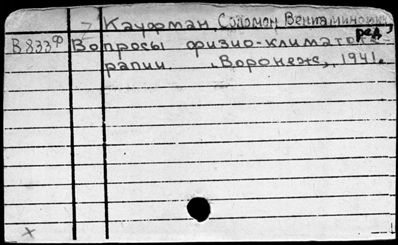 Кауфман, Соломон Вениаминович,
ред.
В833Ф Вопросы физио-климато-
рапии. Воронеж, 1941.